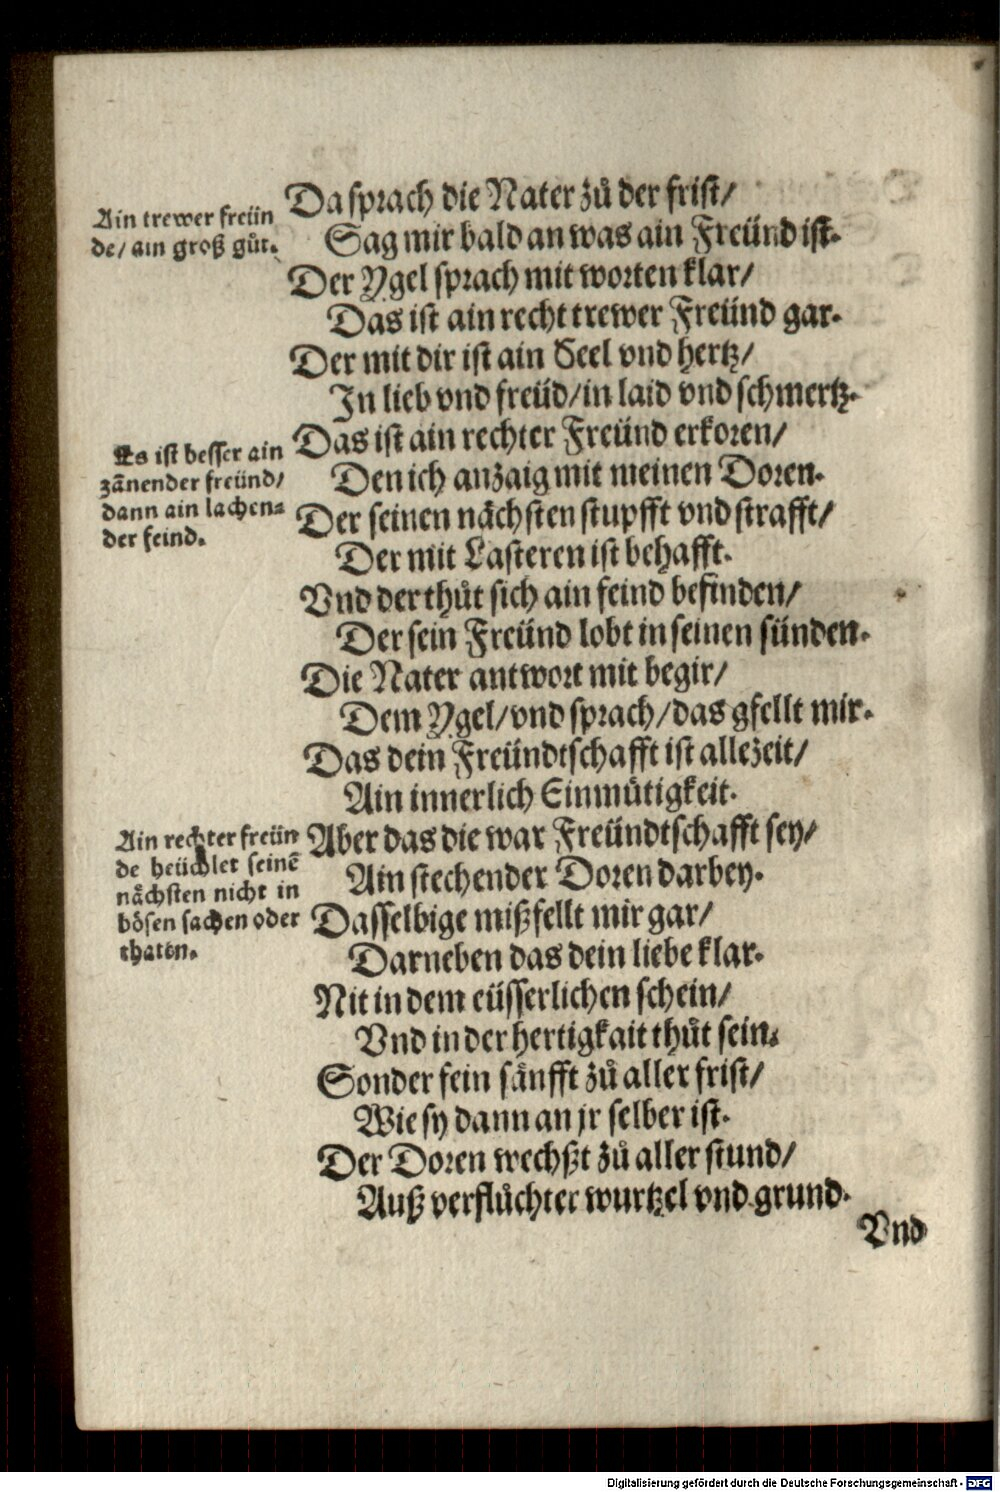 Da sprach die Nater zů der frist/
Sag mir bald an was ain Freünd ist.
Der Ygel sprach mit worten klar/
Das ist ain recht trewer Freünd gar.
Der mit dir ist ain Seel vnd hertz/
In lieb vnd freüd/in laid vnd schmertz.
Das ist ain rechter Freünd erkoren/
Den ich anzaig mit meinen Doren.
Der seinen nächsten stupfft vnd strafft/
Der mit Lasteren ist behafft.
Vnd der thůt sich ain feind befinden/
Der sein Freünd lobt in seinen sünden.
Die Nater antwort mit begir/
Dem Ygel/vnd sprach/das gfellt mir.
Das dein Freündtschafft ist allezeit/
Ain innerlich Einmütigkeit.
Aber das die war Freündtschafft sey/
Ain stechender Doren darbey.
Dasselbige mißfellt mir gar/
Darneben das dein liebe klar.
Nit in dem eüsserlichen schein/
Vnd in der hertigkait thůt sein.
Sonder fein sänfft zů aller frist/
Wie sy dann an jr selber ist.
Der Doren wechßt zů aller stund/
Auß verflůchter wurtzel vnd grund.
Vnd
Ain trewer freün
de/ ain groß gůt.
Es ist besser ain
zānender freünd/
dann ain lachen⸗
der feind.
Ain rechter freün
de heüchlet seinē
nächsten nicht in
bösen sachen oder
thaten.
Digitalisierung gefördert durch die Deutsche Forschungsgemeinschaft - DFG